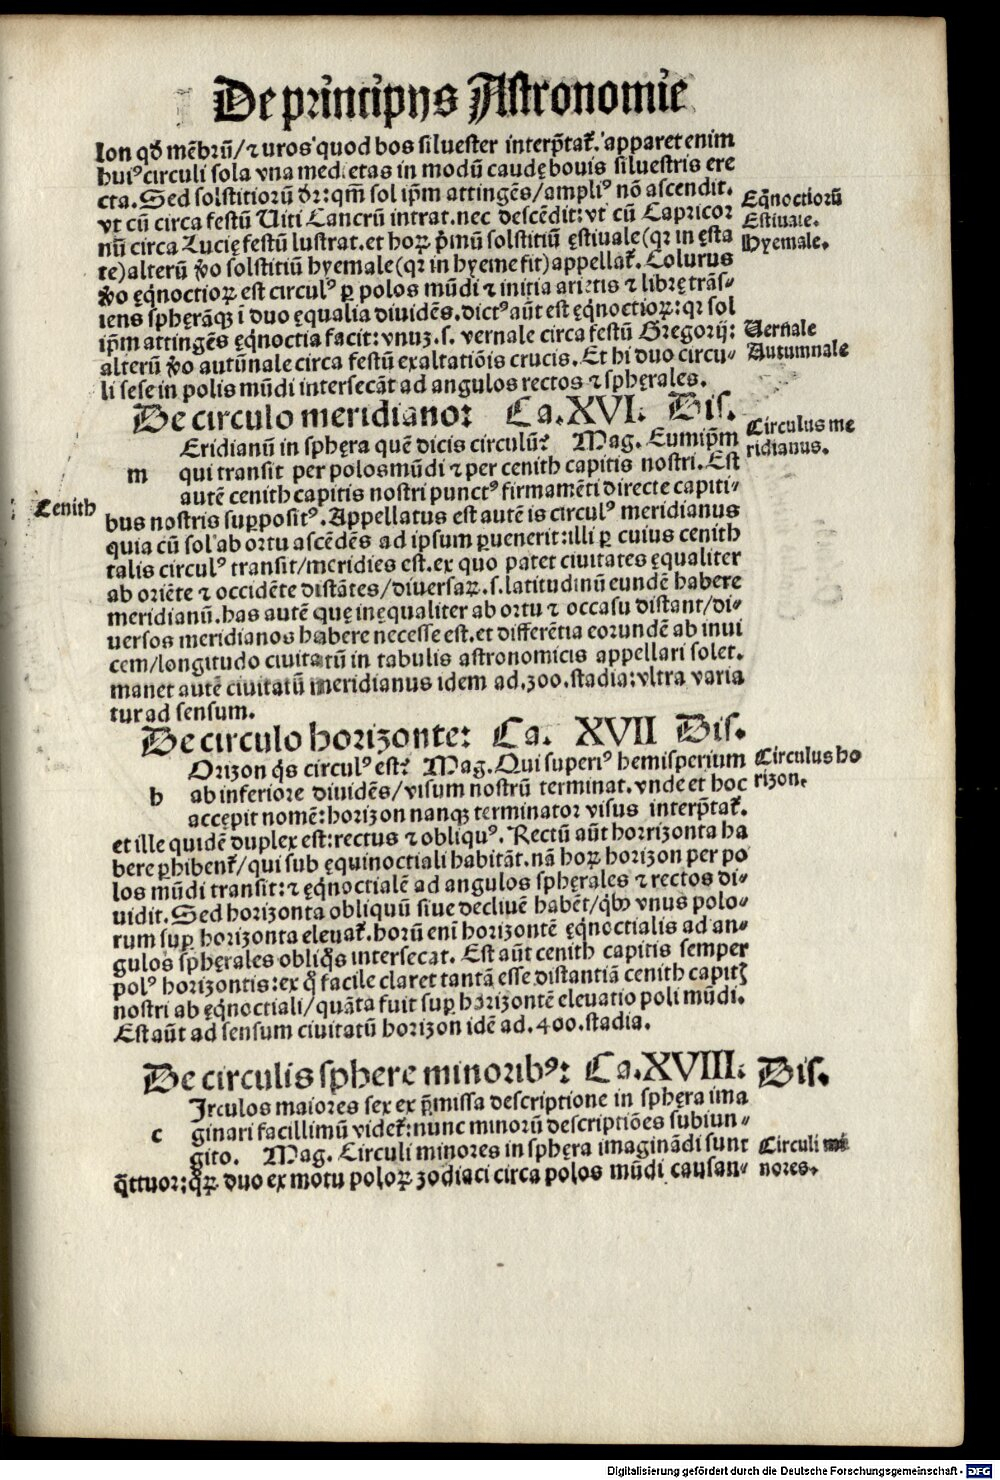 De principijs Astronomie
lon qđ mēbrū/⁊ uros quod bos siluester interp̄tat̄. apparet enim
huiꝰ circuli sola vna medietas in modū caudę bouis siluestris ere
cta. Sed solstitiorū đr: qm̄ sol ip̄m attingēs/ampliꝰ nō ascendit.
vt cū circa festū Uiti Cancrū intrat. nec descēdit: vt cū Capricor
nū circa Lucię festū lustrat. et hoꝝ pͥmū solstitiū ęstiuale (qꝛ in ęsta
te) alterū ꝟo solstitiū hyemale (qꝛ in hyeme fit) appellat̄. Colurus
ꝟo ęqͥnoctioꝝ est circulꝰ ꝑ polos mūdi ⁊ initia arietis ⁊ librę trās-
iens spheṛāqꝫ ī duo ęqualia diuidēs. dictꝰ aūt est ęqͥnoctioꝝ: qꝛ sol
ip̄m attingēs ęqͥnoctia facit: vnuꝫ .s. vernale circa festū Gregorij:
alterū ꝟo autūnale circa festū exaltatiōis crucis. Et hi duo circu-
li sese in polis mūdi intersecāt ad angulos rectos ⁊ sphęrales.
Eqͥnoctiorū
Estiuale.
Hyemale.
Uernale
Autumnale
De circulo meridiano: Ca. XVI. Dis.
Eridianū in sphęra quē dicis circulū? Mag. Eum ip̄m
m qui transit per polos mūdi ⁊ per cenith capitis nostri. Est
autē cenith capitis nostri punctꝰ firmamēti directe capiti-
bus nostris suppositꝰ. Appellatus est autē is circulꝰ meridianus
quia cū sol ab ortu ascēdēs ad ipsum ꝑuenerit: illi ꝑ cuius cenith
talis circulꝰ transit/meridies est. ex quo patet ciuitates ęqualiter
ab oriēte ⁊ occidēte distātes/diuersaꝝ .s. latitudinū eundē habere
meridianū. has autē quę inęqualiter ab ortu ⁊ occasu distant/di-
uersos meridianos habere necesse est. et differētia eorundē ab inui
cem/longitudo ciuitatū in tabulis astronomicis appellari solet.
manet autē ciuitatū meridianus idem ad .300. stadia: vltra varia
tur ad sensum.
Circulus me
ridianus.
Cenith
De circulo horizonte: Ca. XVII Dis.
Orizon qͥs circulꝰ est? Mag. Qui superiꝰ hemisperium
h ab inferiore diuidēs/visum nostrū terminat. vnde et hoc
accepit nomē: horizon nanqꝫ terminator visus interp̄tat̄.
et ille quidē duplex est: rectus ⁊ obliquꝰ. Rectū aūt horrizonta ha
bere ꝑhibent̄/qui sub ęquinoctiali habitāt. nā hoꝝ horizon per po
los mūdi transit: ⁊ ęqͥnoctialē ad angulos sphęrales ⁊ rectos di-
uidit. Sed horizonta obliquū siue decliuē habēt/qͥbꝰ vnus polo-
rum suꝑ horizonta eleuat̄. horū enī horizontē ęqͥnoctialis ad an-
gulos sphęrales obliqͦs intersecat. Est aūt cenith capitis semper
polꝰ horizontis: ex qͦ facile claret tantā esse distantiā cenith capitꝭ
nostri ab ęqͥnoctiali/quāta fuit suꝑ horizontē eleuatio poli mūdi.
Est aūt ad sensum ciuitatū horizon idē ad .400. stadia.
Circulus ho
rizon.
De circulis sphere minoribꝰ: Ca. XVIII. Dis.
Irculos maiores sex ex p̄missa descriptione in sphęra ima
c ginari facillimū videt̄: nunc minorū descriptiōes subiun-
gito. Mag. Circuli minores in sphęra imaginādi sunt
qͣttuor: qͦꝝ duo ex motu poloꝝ zodiaci circa polos mūdi causan-
Circuli mi
nores.
Digitalisierung gefördert durch die Deutsche Forschungsgemeinschaft - DFG